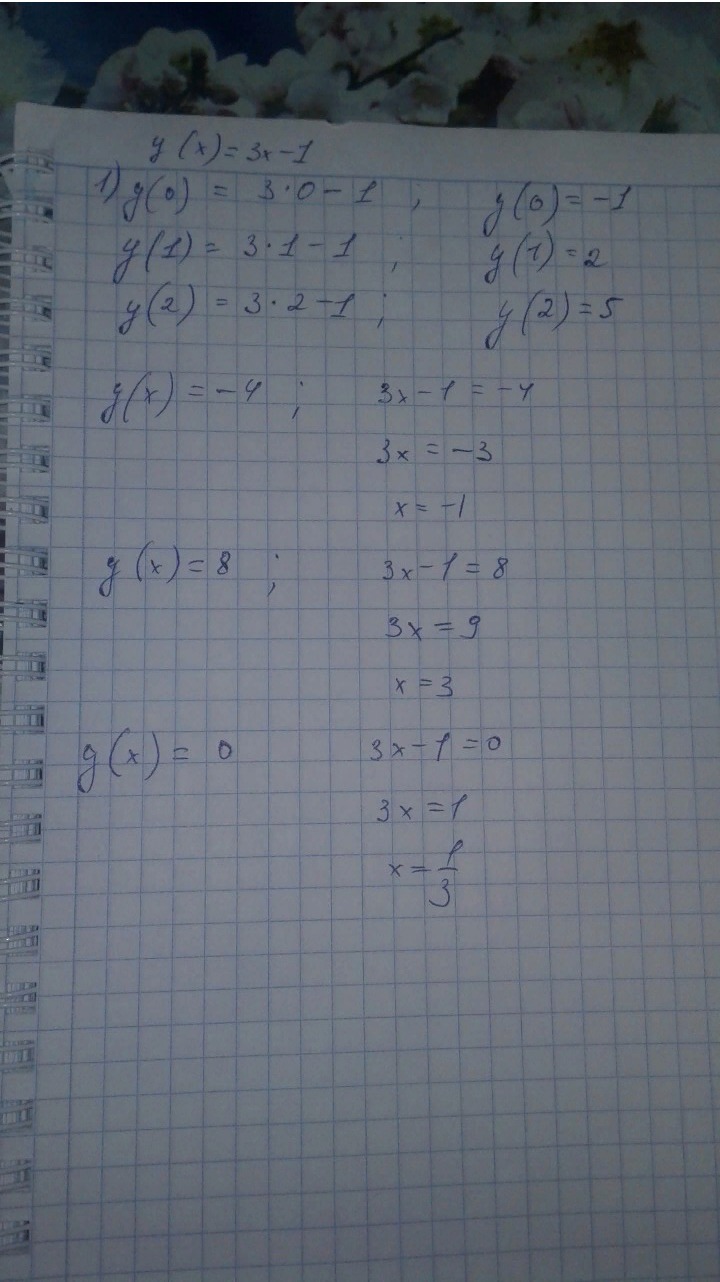 y(x)=3x-1
1) y(0) = 3·0-1 ; y(0)=-1
y(1) = 3·1-1 ; y(1)=2
y(2) = 3·2-1 ; y(2)=5
y(x) = -4 ; 3x-1 = -4
3x = -3
x = -1
y(x) = 8 ; 3x-1 = 8
3x = 9
x = 3
y(x) = 0 3x-1 = 0
3x = 1
x = 1/3